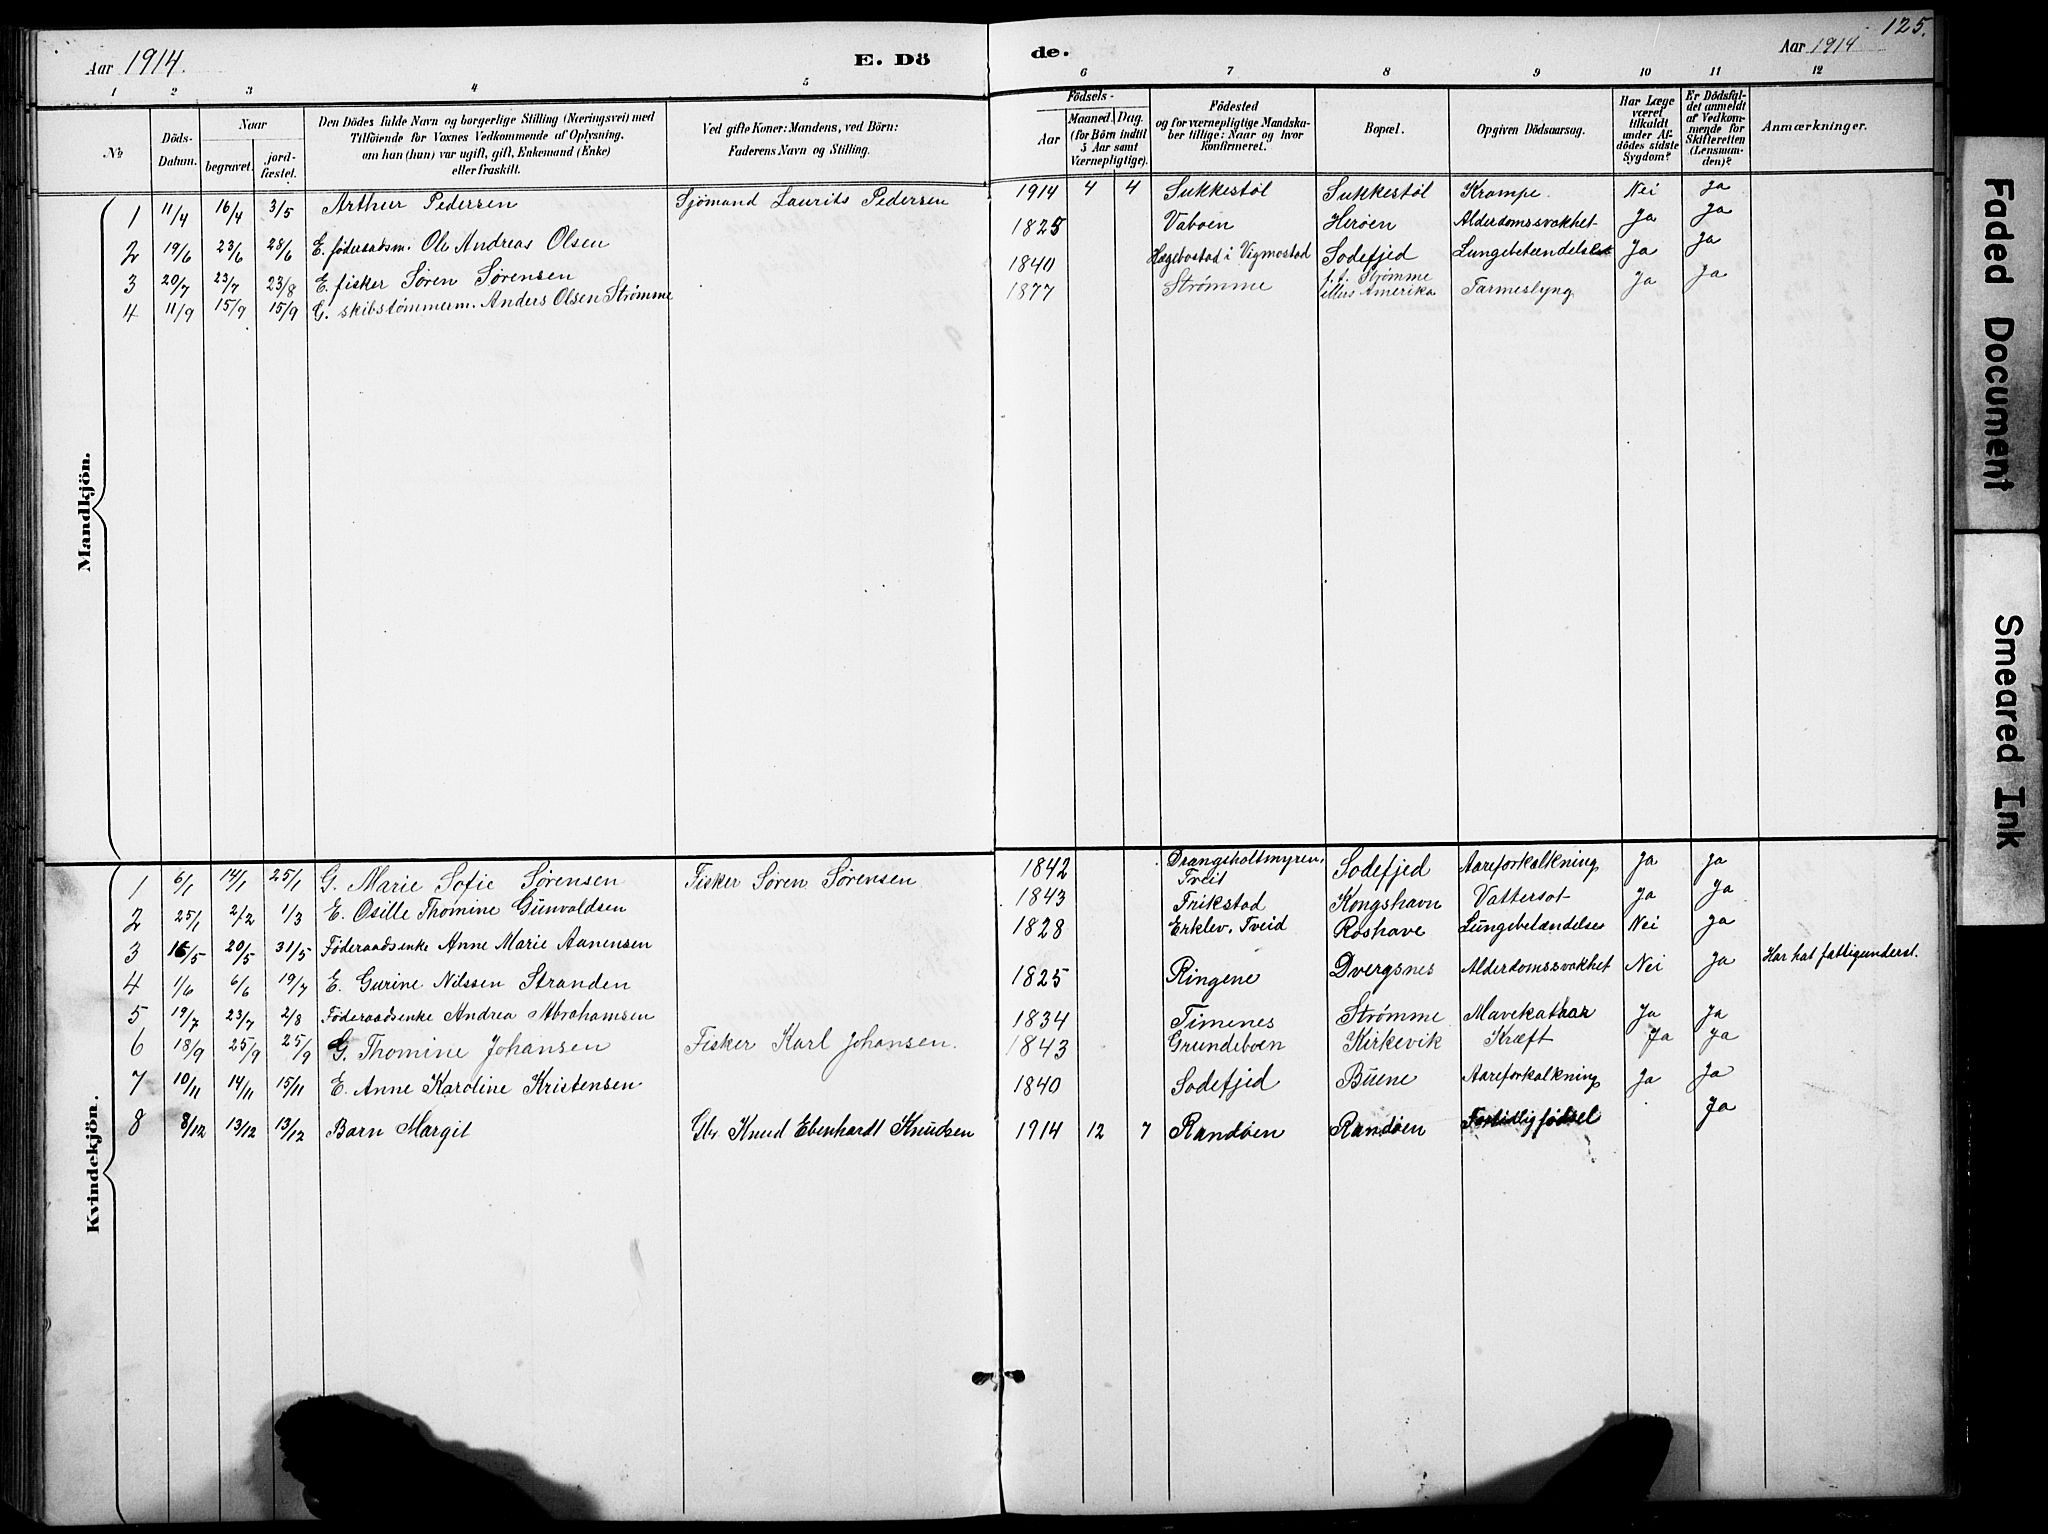 125.
Aar 1914. E. Dö de. Aar 1914
1 2 3 4 5 6 7 8 9 10 11 12
№ Döds-Datum. Naar begravet. jord-fæstet. Den Dödes fulde Navn og borgerlige Stilling (Næringsvei) med Tilföiende for Voxnes Vedkommende af Oplysning, om han (hun) var ugift, gift, Enkemand (Enke) eller fraskilt. Ved gifte Koner: Mandens, ved Börn: Faderens Navn og Stilling. Födsels- Aar Maaned. Dag. (for Börn indtil 5 Aar samt Værnepligtige). Födested og for værnepligtige Mandskaber tillige: Naar og hvor konfirmeret. Bopæl. Opgiven Dödsaarsag. Har Læge været tilkaldt under Afdödes sidste Sygdom? Er Dödsfaldet anmeldt af Vedkommende for Skifteretten (Lensmanden)? Anmærkninger.
Mandkjön.
1 11/4 16/4 3/5 Arthur Pedersen Sjömand Laurits Pedersen 1914 4 4 Sukkestøl Sukkestøl Krampe. Nei Ja
2 19/6 23/6 28/6 E. føderaadsm. Ole Andreas Olsen 1825 Vaboen Herøen Alderdomssvakhet Ja Ja
3 20/7 23/7 23/8 E. fisker Søren Sørensen 1840 Hægebostad i Vigmostad Sodefjed Lungebetændelse Ja Ja
4 11/9 15/9 15/9 G. skibstømmerm. Anders Olsen Strømme 1877 Strømme f.t. Strømme ellers Amerika Tarmeslyng Ja Ja
Kvindekjön.
1 6/1 14/1 25/1 G. Marie Sofie Sørensen Fisker Søren Sørensen 1842 Drangsholtmyren, Tveit Sodefjed Aareforkalkning Ja Ja
2 25/1 2/2 1/3 E. Osille Thomine Gunvaldsen 1843 Frikstad Kongshavn Vattersot Ja Ja
3 16/5 20/5 31/5 Føderaadsenke Anne Marie Aanensen 1828 Erklev, Tveid Roshave Lungebetændelse Nei Ja
4 1/6 6/6 19/7 E. Gurine Nilssen Stranden 1825 Ringene Dvergsnes Alderdomssvakhet Nei Ja Har hat fattigunderst.
5 19/7 23/7 2/8 Føderaadsenke Andrea Abrahamsen 1834 Timenes Strømme Mavekathar Ja Ja
6 18/9 25/9 25/9 G. Thomine Johansen Fisker Karl Johansen. 1843 Grundeboen Kirkevik Kræft Ja Ja
7 10/11 14/11 15/11 E. Anne Karoline Kristensen 1840 Sodefjed Buene Aareforkalkning Ja Ja
8 8/12 13/12 13/12 Barn Margit Gbr. Knud Ebenhardt Knudsen 1914 12 7 Randøen Randøen Fortidlig fødsel Ja
Faded Document
Smeared Ink